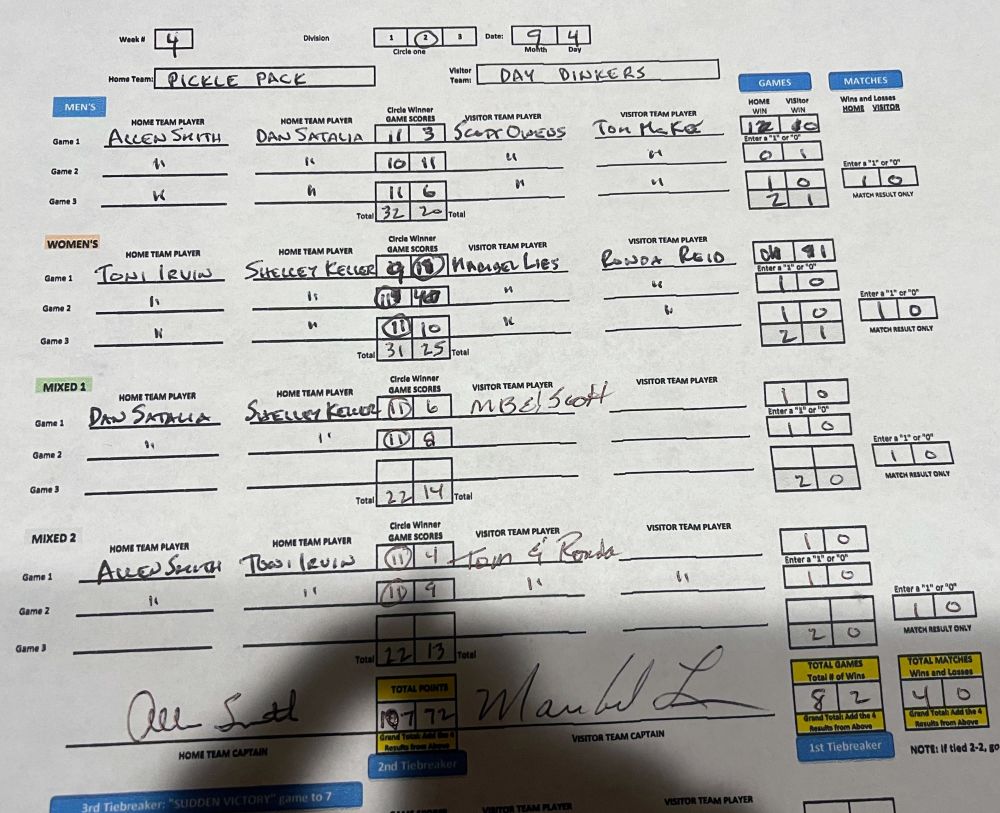 Week # 4 Division 1 2 3 Date: 9 4
Circle one Month Day
Home Team: PICKLE PACK Visitor Team: DAY DINKERS
GAMES MATCHES
MEN'S
HOME WIN Visitor WIN Wins and Losses HOME VISITOR
HOME TEAM PLAYER HOME TEAM PLAYER Circle Winner GAME SCORES VISITOR TEAM PLAYER VISITOR TEAM PLAYER
Game 1 ALLEN SMITH DAN SATALIA 11 3 SCOTT OWENS TOM McKEE
Enter a "1" or "0"
Game 2 " " 10 11 " " 0 1
Enter a "1" or "0"
Game 3 " " 11 6 " " 1 0 1 0
Total 32 20 Total 2 1 MATCH RESULT ONLY
WOMEN'S
HOME TEAM PLAYER HOME TEAM PLAYER Circle Winner GAME SCORES VISITOR TEAM PLAYER VISITOR TEAM PLAYER
Game 1 TONI IRVIN SHELLEY KELLER 9 LIES RONDA REID
Enter a "1" or "0"
Game 2 " " 11 " " 1 0
Enter a "1" or "0"
Game 3 " " 11 10 " " 1 0 1 0
Total 31 25 Total 2 1 MATCH RESULT ONLY
MIXED 1
HOME TEAM PLAYER HOME TEAM PLAYER Circle Winner GAME SCORES VISITOR TEAM PLAYER VISITOR TEAM PLAYER
Game 1 DAN SATALIA SHELLEY KELLER 11 6 MB & Scott 1 0
Enter a "1" or "0"
Game 2 " " 11 8 1 0
Enter a "1" or "0"
Game 3 1 0
Total 22 14 Total 2 0 MATCH RESULT ONLY
MIXED 2
HOME TEAM PLAYER HOME TEAM PLAYER Circle Winner GAME SCORES VISITOR TEAM PLAYER VISITOR TEAM PLAYER
Game 1 ALLEN SMITH TONI IRVIN 11 4 Tom & Ronda 1 0
Enter a "1" or "0"
Game 2 " " 11 9 " " 1 0
Enter a "1" or "0"
Game 3 1 0
Total 22 13 Total 2 0 MATCH RESULT ONLY
TOTAL POINTS TOTAL GAMES Total # of Wins TOTAL MATCHES Wins and Losses
Allen Smith 107 72 8 2 4 0
Grand Total: Add the 4 Results from Above Grand Total: Add the 4 Results from Above Grand Total: Add the 4 Results from Above
HOME TEAM CAPTAIN VISITOR TEAM CAPTAIN
2nd Tiebreaker 1st Tiebreaker NOTE: If tied 2-2, go
3rd Tiebreaker: "SUDDEN VICTORY" game to 7
GAME SCORES VISITOR TEAM PLAYER VISITOR TEAM PLAYER